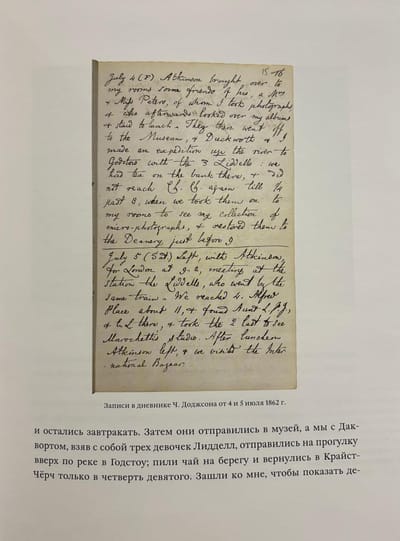 15 16
July 4 (F) Atkinson brought over to
my rooms some friends of his, a Mrs
& Miss Peters, of whom I took photographs
& who afterwards looked over my albums
& staid to lunch. They then went off
to the Museum, & Duckworth & I
made an expedition up the river to
Godstow with the 3 Liddells: we
had tea on the bank there, & did
not reach Ch. Ch. again till ¼
past 8, when we took them on to
my rooms to see my collection of
micro-photographs, & restored them to
the Deanery, just before 9.
July 5 (Sat) Left, with Atkinson,
for London at 9.2, meeting at the
station the Liddells, who went by the
same train. We reached 4. Alfred
Place about 11, & found Aunt L,
& L there, & took the 2 last to see
Marochetti's studio. After luncheon
Atkinson left, & we visited the Inter-
national Bazaar.
Записи в дневнике Ч. Доджсона от 4 и 5 июля 1862 г.
и остались завтракать. Затем они отправились в музей, а мы с Дак-
вортом, взяв с собой трех девочек Лидделл, отправились на прогулку
вверх по реке в Годстоу; пили чай на берегу и вернулись в Крайст-
Чёрч только в четверть девятого. Зашли ко мне, чтобы показать де-